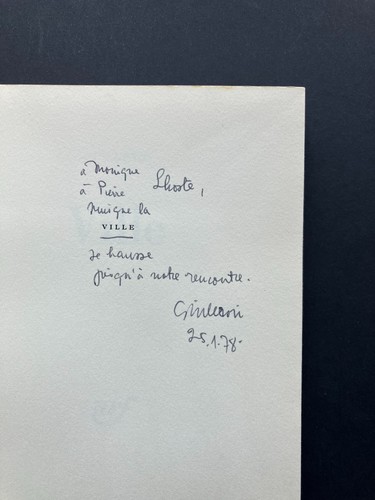 à Monique
à Pierre Lhoste,
puisque la
VILLE
se hausse
jusqu'à notre rencontre.
Guillevic
25.1.78.